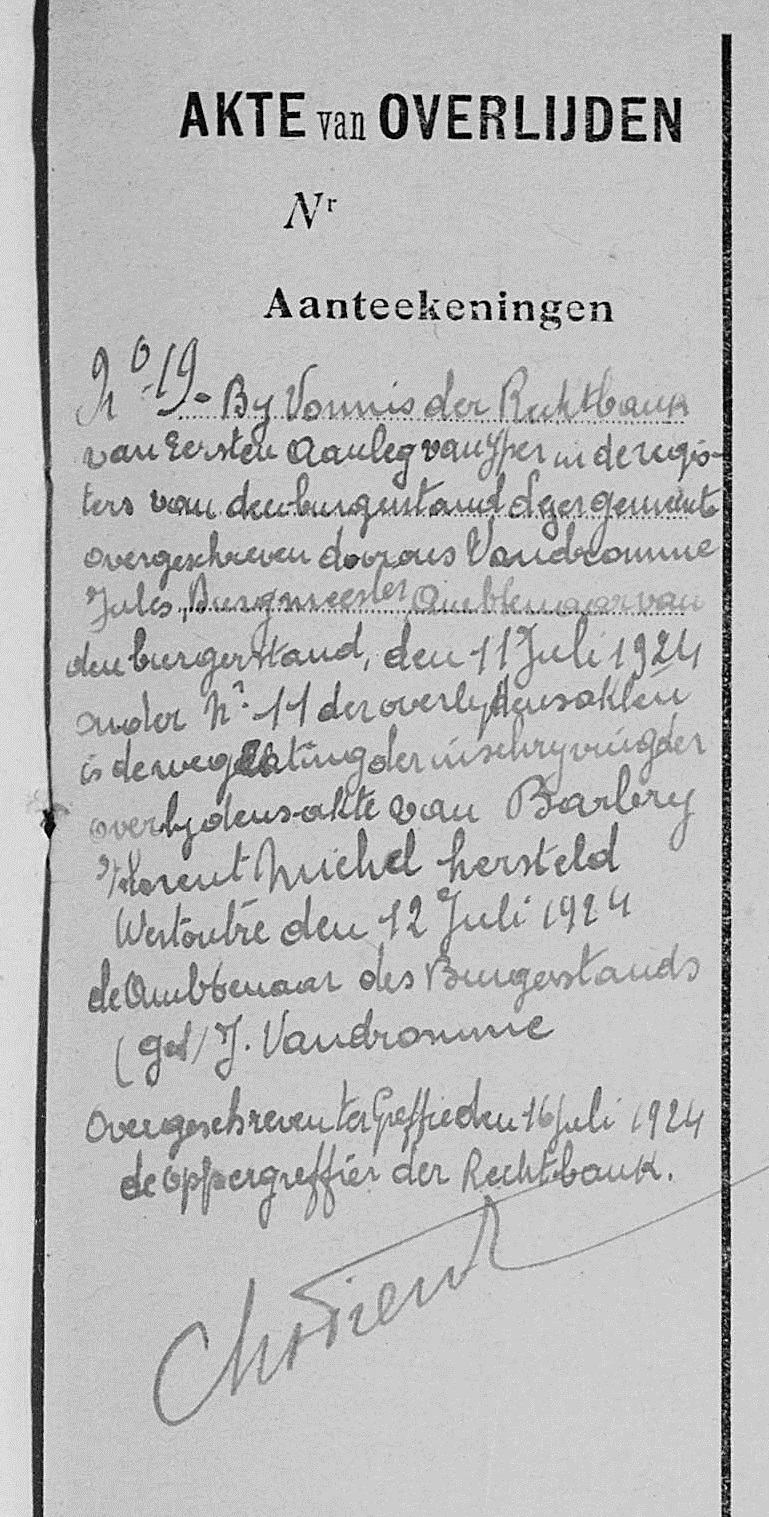 AKTE van OVERLIJDEN
Nr
Aanteekeningen
No 19. By Vonnis der Rechtbank
van Eersten Aanleg van Yper in de regis-
ters van den burgerstand dezer gemeente
overgeschreven door ons Vandromme
Jules, Burgmeester Ambtenaar van
den burgerstand, den 11 Juli 1924
onder Nr. 11 der overlydensakten
is de weglating der inschryving der
overlydensakte van Barbry
Florent Michel hersteld
Westoutre den 12 Juli 1924
de Ambtenaar des Burgerstands
(get) J. Vandromme
Overgeschreven ter Greffie den 16 Juli 1924
de oppergreffier der Rechtbank.